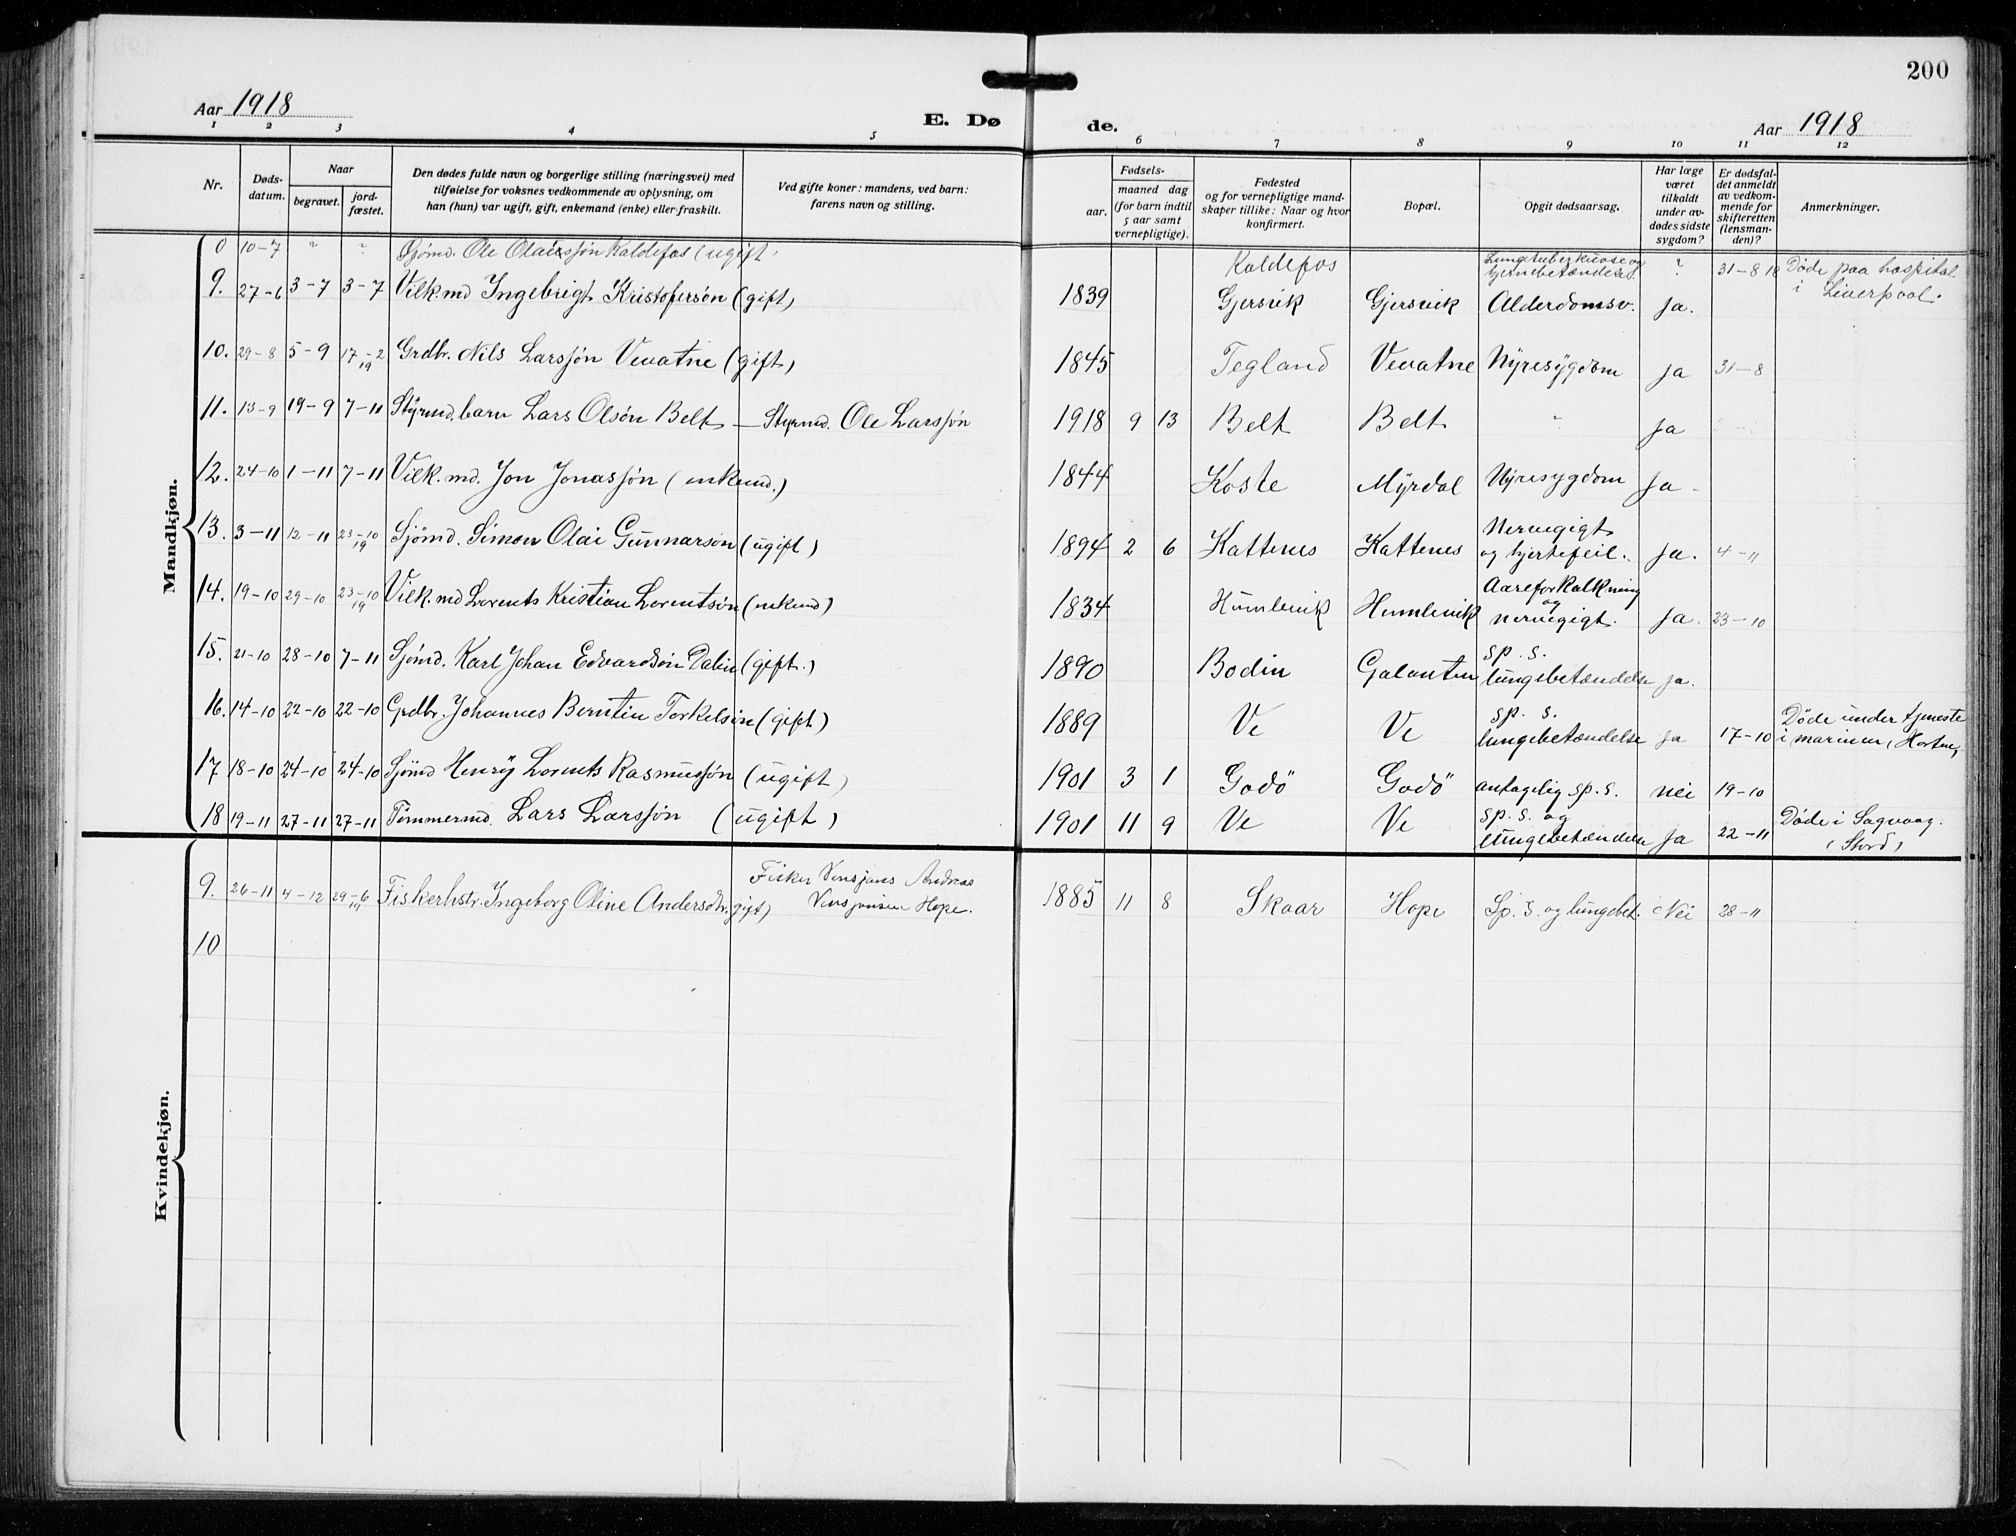 200
Aar 1918
E. Dø
de.
Aar 1918
1 2 3 4 5 6 7 8 9 10 11 12
Nr.
Døds-
datum.
Naar
begravet.
jord-
fæstet.
Den dødes fulde navn og borgerlige stilling (næringsvei) med
tilføielse for voksnes vedkommende av oplysning, om
han (hun) var ugift, gift, enkemand (enke) eller fraskilt.
Ved gifte koner: mandens, ved barn:
farens navn og stilling.
Fødsels-
aar.
maaned dag
(for barn indtil
5 aar samt
vernepligtige).
Fødested
og for vernepligtige mand-
skaper tillike: Naar og hvor
konfirmert.
Bopæl.
Opgit dødsaarsag.
Har læge
været
tilkaldt
under av-
dødes sidste
sygdom?
Er dødsfal-
det anmeldt
av vedkom-
mende for
skifteretten
(lensman-
den)?
Anmerkninger.
Mandkjøn.
0 10-7 " ? Sjømd. Ole Olaissjøn Kaldefos (ugift. Kaldefos Lungtuberkulose og ? 31-8 19 Døde paa hospital
i Liverpool.
9. 27-6 3-7 3-7 Vilk.md Ingebrigt Kristofersøn (gift) 1839 Gjersvik Gjersvik Alderdomsv. Ja.
10. 29-8 5-9 17-2 19 Grdbr. Nils Larssjøn Vevatne (gift) 1845 Tegland Vevatne Nyresygdom Ja 31-8
11. 13-9 19-9 7-11 Styrmd. barn Lars Olsøn Belt — Styrmd. Ole Larssjøn 1918 9 13 Belt Belt " Ja
12. 24-10 1-11 7-11 Vilk.md. Jon Jonassjøn (enkemd.) 1844 Koste Myrdal Nyresygdom Ja.
13. 3-11 12-11 23-10 19 Sjømd. Simon Olai Gunnarsøn (ugift) 1894 2 6 Kattenes Kattenes Nervegigt
og hjertefeil. Ja. 4-11
14. 19-10 29-10 23-10 19 Vilk.md Lorents Kristian Lorentsøn (enkemd) 1834 Humlevik Humlevik Aareforkalkning
og
nervegigt. Ja. 23-10
15. 21-10 28-10 7-11 Sjømd. Karl Johan Edvardsøn Dalin (gift.) 1890 Bodin Galanten sp. s.
lungebetændelse Ja.
16. 14-10 22-10 22-10 Grdbr. Johannes Berntin Torkelsøn (gift) 1889 Ve Ve sp. s.
lungebetændelse Ja 17-10 Døde under tjeneste
i marinen, Horten,
17 18-10 24-10 24-10 Sjømd Henry Lorents Rasmussjøn (ugift) 1901 3 1 Godö Godö antagelig sp. s. nei 19-10
18 19-11 27-11 27-11 Tømmermd. Lars Larssjøn (ugift) 1901 11 9 Ve Ve sp. s. og
lungebetændelse Ja 22-11 Døde i Sagvaag.
(Stord)
Kvindekjøn.
9. 26-11 4-12 29-6 19 Fiskerhstr. Ingeborg Oline Andersdtr. gift) Fisker Andreas
Hope. 1885 11 8 Skaar Hope Sp. s. og lungebet. Nei 28-11
10